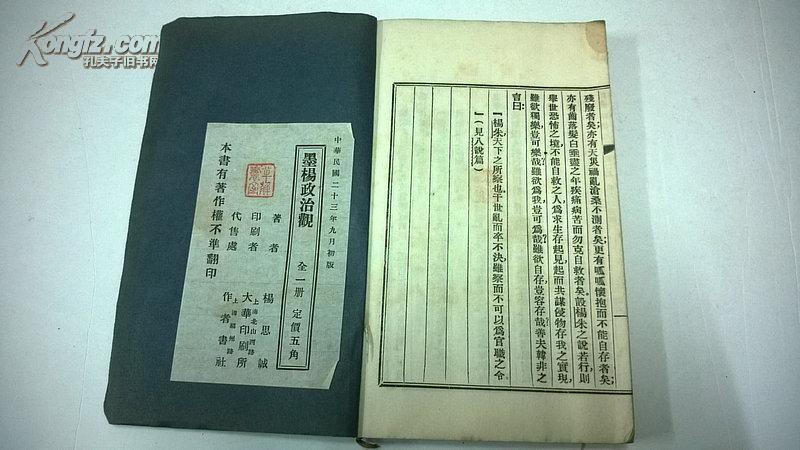 Kongfz.com
孔夫子旧书网
殘廢者矣;亦有天災禍亂滄桑不測者矣;更有呱呱懷抱而不能自存者矣;
亦有齒落髮白垂盡之年疾痛病苦而勿克自救者矣。設楊朱之說若行,則
舉世恐怖之境,不能自救之人,為求生存起見,起而共謀侵物存我之實現,
雖欲獨樂,豈可樂哉?雖欲為我,豈可為哉?雖欲自存,豈容存哉?善夫韓非之
言曰:
『楊朱,天下之所察也,干世亂而卒不決,雖察而不可以為官職之令
』(見八說篇)
中華民國二十三年九月初版
墨楊政治觀
全一册 定價五角
著者 楊思誠
印刷者 大華印刷所
上海北山西路
代售處 作者書社
上海福州路
本書有著作權不準翻印